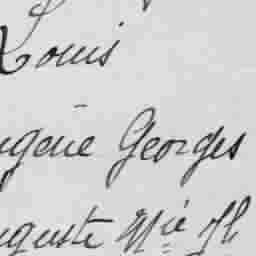 Louis
ugène Georges
uguste Mie